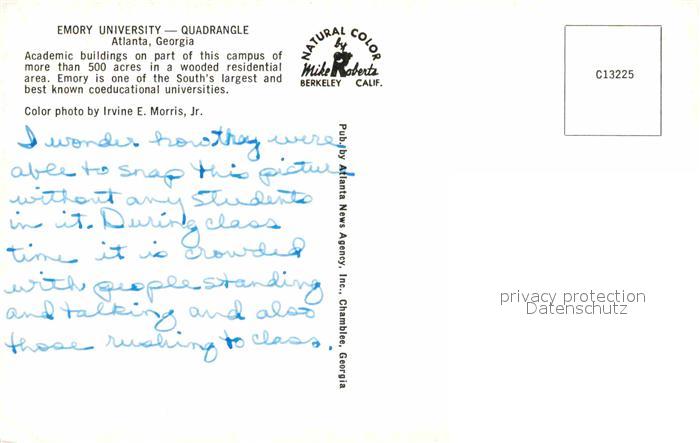 EMORY UNIVERSITY — QUADRANGLE
Atlanta, Georgia
Academic buildings on part of this campus of
more than 500 acres in a wooded residential
area. Emory is one of the South's largest and
best known coeducational universities.
Color photo by Irvine E. Morris, Jr.
I wonder how they were
able to snap this picture
without any students
in it. During class
time it is crowded
with people standing
and talking and also
those rushing to class.
Pub. by Atlanta News Agency, Inc., Chamblee, Georgia
NATURAL COLOR
by
Mike Roberts
BERKELEY CALIF.
C13225
privacy protection
Datenschutz